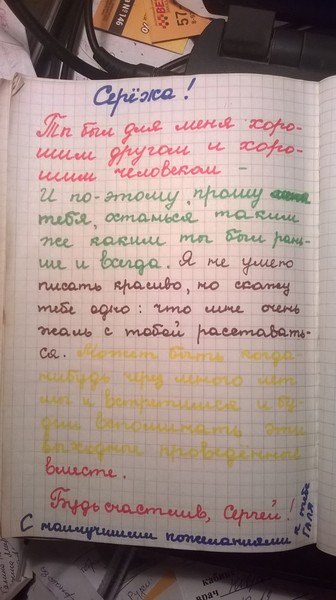 №146
57
Серёжа!
Ты был для меня хоро-
шим другом и хоро-
шим человеком -
И по-этому, прошу
тебя, останься таким
же каким ты был рань-
ше и всегда. Я не умею
писать красиво, но скажу
тебе одно: что мне очень
жаль с тобой расставать-
ся. Может быть когда
нибудь через много лет
мы и встретимся и бу-
дем вспоминать эти
выходные проведённые
вместе.
Будь счастлив, Сергей!
С наилучшими пожеланиями
к тебе
Галя
врач